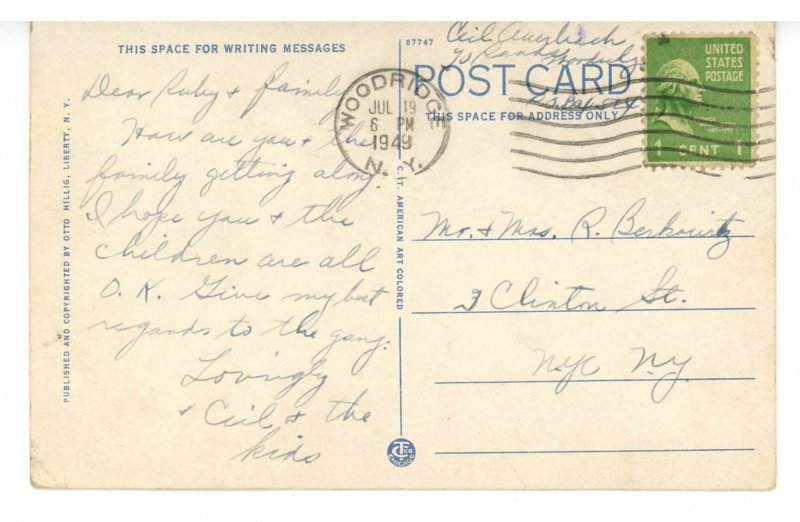 THIS SPACE FOR WRITING MESSAGES
Dear Ruby & family
How are you & the
family getting along.
I hope you & the
children are all
O.K. Give my best
regards to the gang.
Lovingly
& Ceil & the
kids
PUBLISHED AND COPYRIGHTED BY OTTO HILLIG, LIBERTY, N. Y.
87747
C. T. AMERICAN ART COLORED
Ceil
POST CARD
THIS SPACE FOR ADDRESS ONLY
WOODRIDGE
JUL 19
6 PM
1949
N. Y.
UNITED
STATES
POSTAGE
1 CENT 1
Mr. & Mrs. R. Berkowitz
3 Clinton St.
NYC N.Y.
CHICAGO